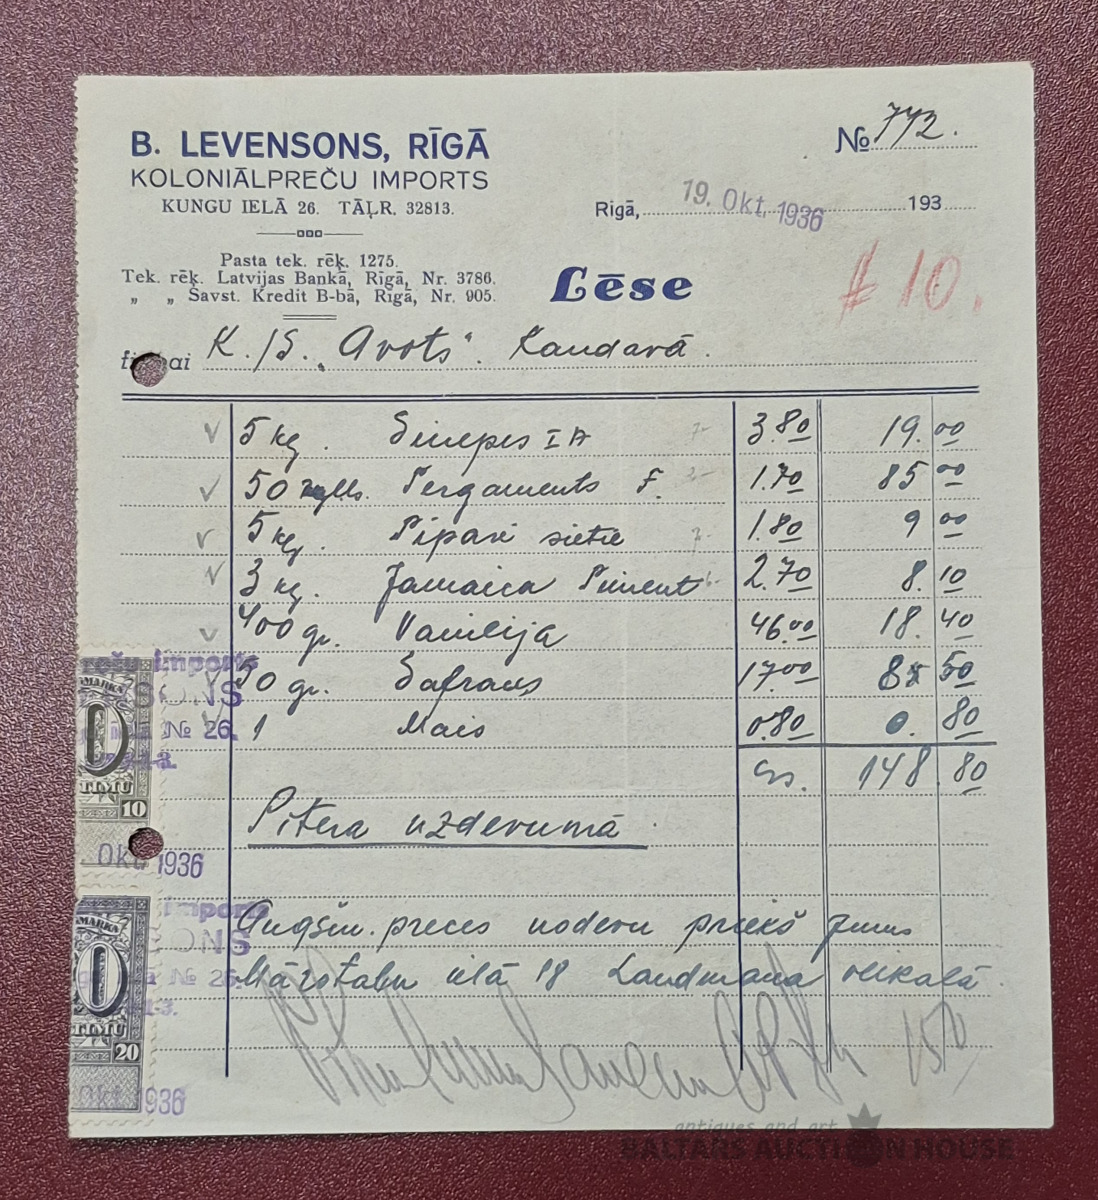 B. LEVENSONS, RĪGĀ
KOLONIĀLPREČU IMPORTS
KUNGU IELĀ 26. TĀĻR. 32813.
Pasta tek. rēķ. 1275.
Tek. rēķ. Latvijas Bankā, Rīgā, Nr. 3786.
„ „ Savst. Kredit B-bā, Rīgā, Nr. 905.
№ 772.
Rīgā, 19. Okt. 1936 193
Lēse
# 10.
K./S. „Avots". Kandavā.
5 kg. Sinepes I A 3.80 19.00
50 Pergaments F. 1.70 85 00
5 kg. Pipari sietie 1.80 9 00
3 kg. Jamaica Piment 2.70 8.10
400 gr. Vanilija 46.00 18.40
50 gr. Safrans 17.00 8 50
1 Mais 0.80 0.80
148.80
Pitera uzdevumā
Augšm. preces nodevu priekš Jums
Mārstaļu ielā 18 Landmana veikalā
imports
SONS
№ 26.
10
Okt 1936
Imports
ONS
№ 26.
20
1936
antiques and art
BALTARS AUCTION HOUSE